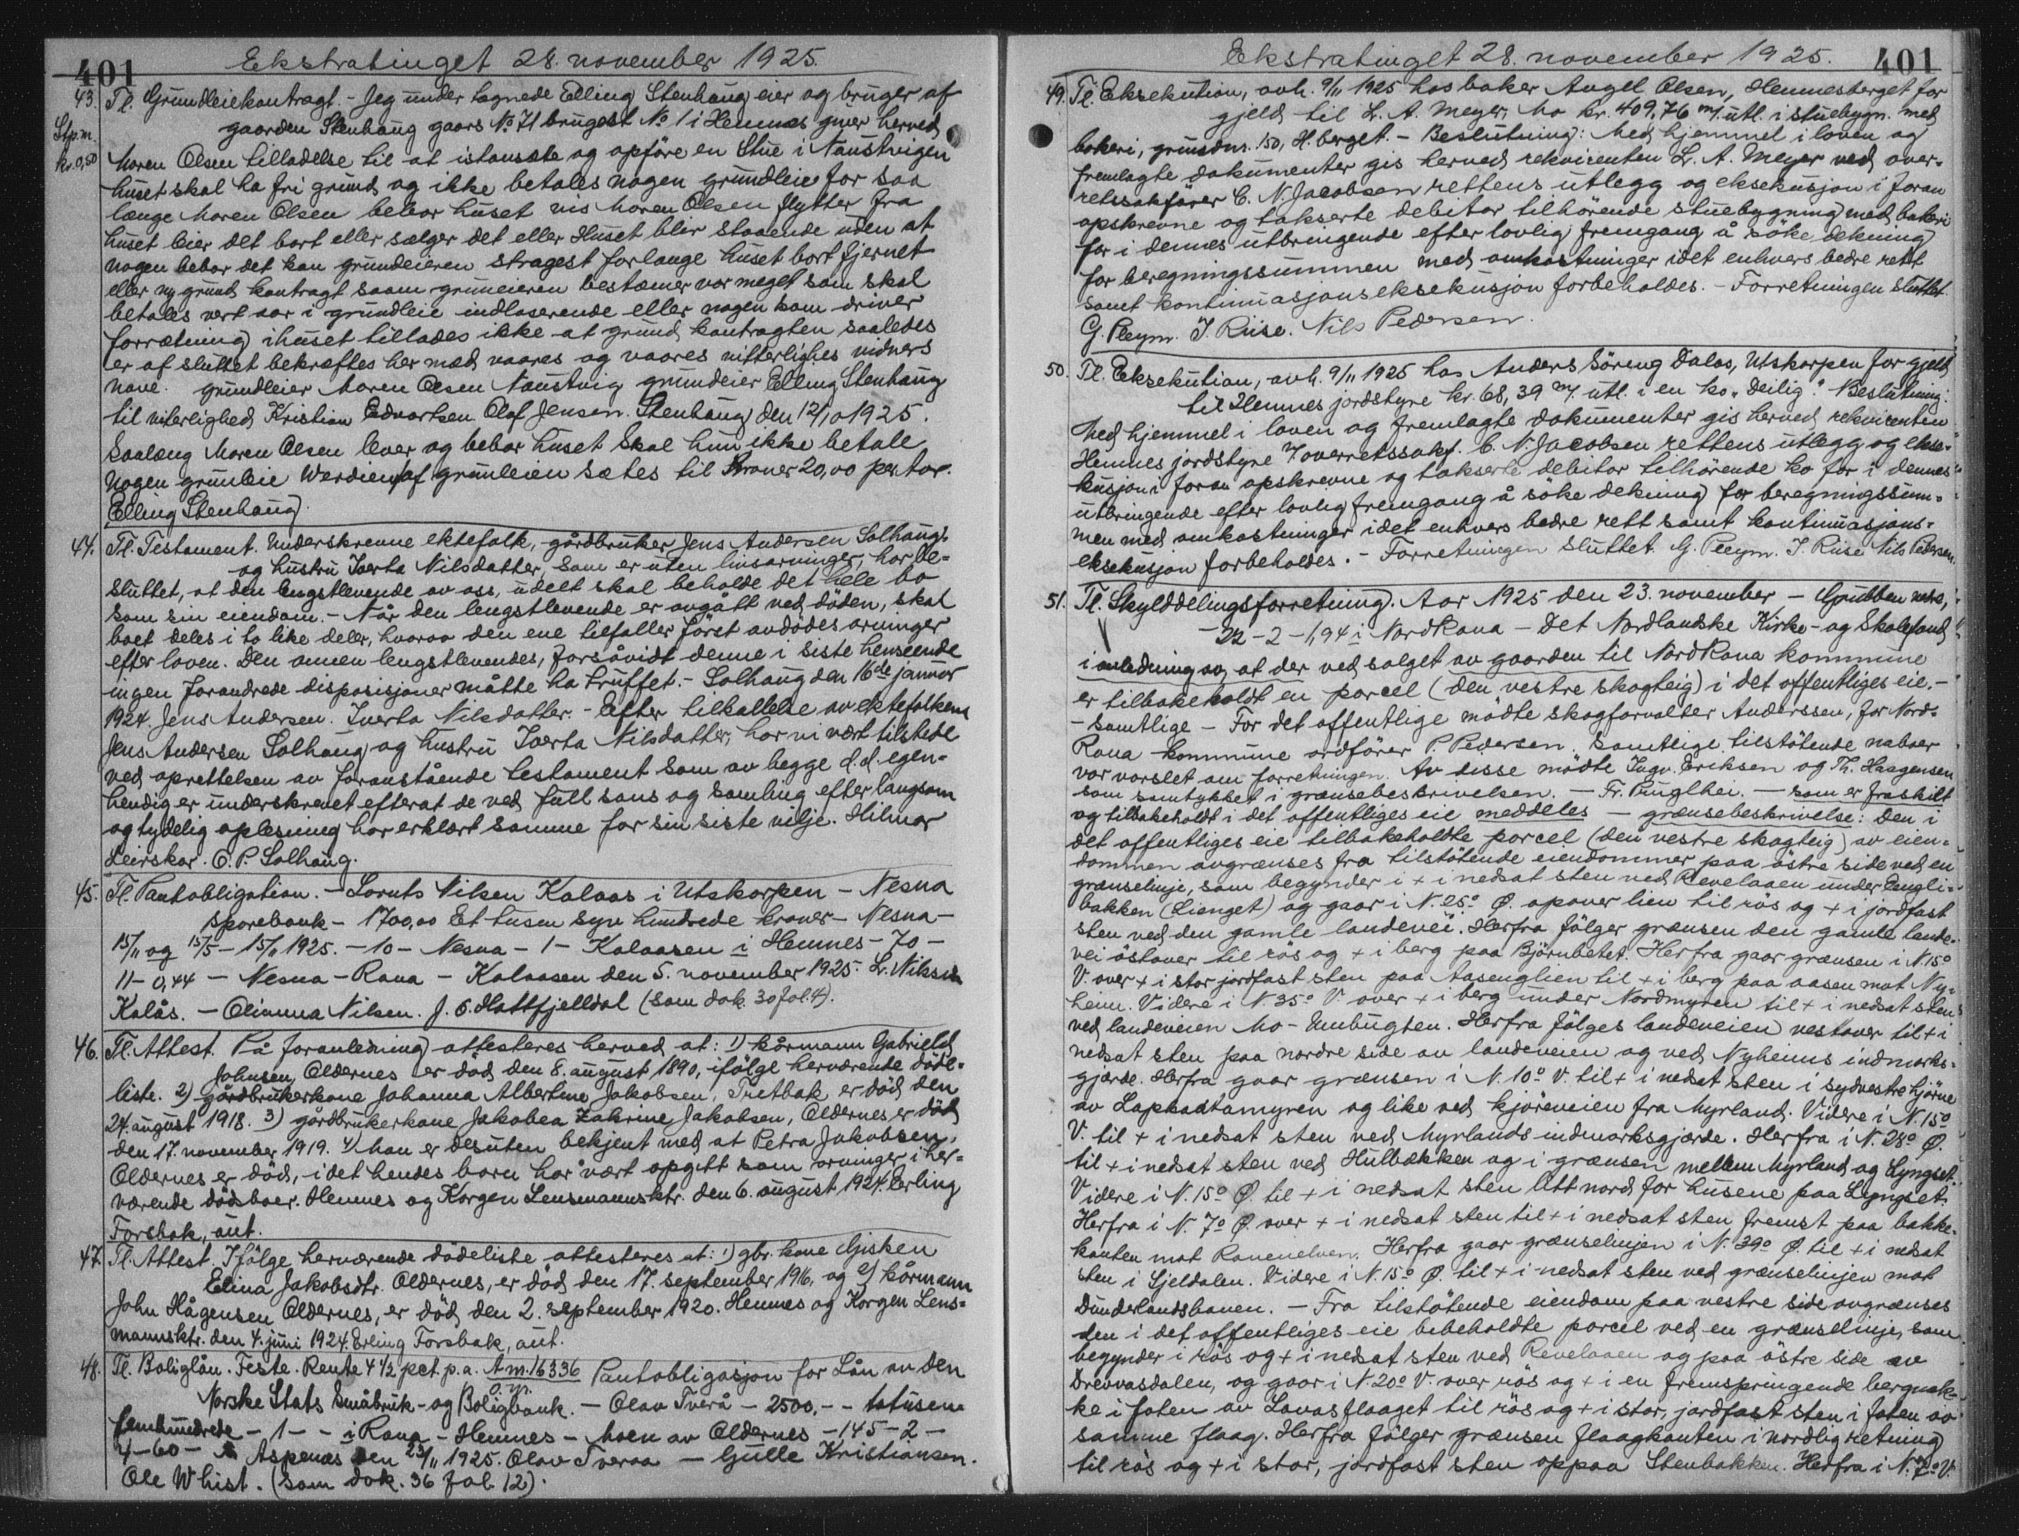 401
Ekstratinget 28. november 1925.
43. Tl. Grundleiekontragt. - Jeg under tegnede Elling Stenhaug eier og bruger af
gaarden Stenhaug gaars No 71 brugest No 1 i Hemnes giver herved
Stp.m.
kr. 0,50
Maren Olsen tilladelse til at istansæte og opföre en Stue i Naustvigen
huset skal ha fri grund og ikke betales nogen grundleie for saa
længe Maren Olsen bebor huset vis Maren Olsen flytter fra
huset leier det bort eller sælger det eller Huset blir staaende uden at
nogen bebor det kan grundeieren stragest forlange huset bort fjernet
eller ny grund kontragt saam gruneieren bestæmer vor meget som skal
betales vert aar i grundleie indloserende eller nogen kom driver
forrætning i huset tillades ikke at grund kontragten saaledes
er af sluttet bekræftes her mæd vaares og vaares vitterlighes vidners
nave. grundleier Maren Olsen Naustvig grundeier Elling Stenhaug
til viterlighed Kristian Edvartsen Olaf Jensen. Stenhaug den 12/10 1925.
Saalæng Maren Olsen lever og bebor huset Skal hun ikke betale
Nogen grunleie Werdien af grunleien sætes til Kroner 20,00 per aar.
Elling Stenhaug.
44. Tl. Testament. Underskrevne ektefolk, gårdbruker Jens Andersen Solhaug
og hustru Iverta Nilsdatter, som er uten livsarvinger, har be-
sluttet, at den lengstlevende av oss, udelt skal beholde det hele bo
som sin eiendom. - Når den lengstlevende er avgått ved döden, skal
boet deles i to like deler, hvorav den ene tilfaller först avdödes arvinger
efter loven. Den annen lengstlevendes, forsåvidt denne i siste henseende
ingen forandrede disposisjoner måtte ha truffet. - Solhaug den 16de januar
1924. Jens Andersen. Iverta Nilsdatter. - Efter tilkallelse av ektefolkene
Jens Andersen Solhaug og hustru Iverta Nilsdatter, har vi vært tilstede
ved oprettelsen av foranstående testament som av begge d.d. egen-
hendig er underskrevet efterat de ved full sans og samling efter langsom
og tydelig oplesning har erklært samme for sin siste vilje. Hilmar
Leirskar. O. P. Solhaug.
45. Tl. Pantobligation. - Lornts Nilsen Kalaas i Utskarpen - Nesna
Sparebank - 1700,00 Et tusen syv hundrede kroner - Nesna -
15/11 og 15/5 - 15/11 1925. - 10 - Nesna - 1 - Kalaasen i Hemnes - 70 -
11 - 0,44 - Nesna - Rana - Kalaasen den 5. november 1925. L. Nilssen
Kalås. - Olianna Nilsen. J. O. Hattfjelldal (som dok. 30 fol. 4).
46. Tl. Attest. På foranledning attesteres herved at: 1) kårmann Gabriel
Johnsen Oldernes er död den 8. august 1890, ifölge herværende död-
liste. 2) gårdbrukerkone Johanna Albertine Jakobsen, Tretbak er död den
24. august 1918. 3) gårdbrukerkone Jakobea Zakrine Jakobsen, Oldernes er död
den 17. november 1919. 4) han er desuten bekjent med at Petra Jakobsen,
Oldernes er död, idet hendes barn har vært opgitt som arvinger i her-
værende dödsboer. Hemnes og Korgen Lensmannsktr. den 6. august 1924. Erling
Forsbak, aut.
47. Tl. Attest. Ifölge herværende dödeliste attesteres at: 1) gbr. kone Gjisken
Elina Jakobsdtr. Oldernes, er död den 17. september 1916, og 2) kårmann
John Hågensen Oldernes, er död den 2. september 1920. Hemnes og Korgen Lens-
mannsktr. den 4. juni 1924. Erling Forsbak, aut.
48. Tl. Boliglån. Feste. Rente 4 1/2 pct. p.a. A.m. 16336 Pantobligasjon for Lån av Den
Norske Stats Småbruk- og Boligbank. - Olav Tverå - 2500,- - totusen
femhundrede - 1 - - i Rana - Hemnes - Moen av Oldernes - 145 - 2 -
4 - 60 - Aspenæs den 23/11 1925. Olav Tveraa - Gulle Kristiansen.
Ole Whist. (som dok. 36 fol. 12).
Ekstratinget 28. november 1925.
401
49. Tl. Eksekution, avh. 9/11 1925 hos baker Angel Olsen, Hemnesberget for
gjeld til L. A. Meyer, Mo kr. 409,76 m/ utl. i stuebygn. med
bakeri, grundnr. 150, H.berget. - Beslutning: Med hjemmel i loven og
fremlagte dokumenter gis herved rekvirenten L. A. Meyer ved over-
retssakförer C. N. Jacobsen rettens utlegg og eksekusjon i foran
opskrevne og takserte debitor tilhörende stuebygning med bakeri
for i dennes utbringende efter lovlig fremgang å söke dekning
for beregningssummen med omkostninger idet enhvers bedre rett
samt kontinuasjonseksekusjon forbeholdes. - Forretningen sluttet.
G. Pleym. J. Riise. Nils Pedersen.
50. Tl. Eksekution, avh. 9/11 1925 hos Anders Söreng Dalos, Utskarpen for gjeld
til Hemnes jordstyre kr. 68,39 m/ utl. i en ko „Deilig". Beslutning:
Med hjemmel i loven og fremlagte dokumenter gis herved rekvirenten
Hemnes jordstyre v/overretssakf. C. N. Jacobsen rettens utlegg og ekse-
kusjon i foran opskrevne og takserte debitor tilhörende ko for i dennes
utbringende efter lovlig fremgang å söke dekning for beregningssum-
men med omkostninger idet enhvers bedre rett samt kontinuasjons-
eksekusjon forbeholdes. - Forretningen sluttet. G. Pleym. J. Riise Nils Pedersen.
51. Tl. Skylddelingsforretning. Aar 1925 den 23. november - Grubben
- 22 - 2 - 1,94 i NordRana - Det Nordlandske Kirke- og Skolefond
i anledning av at der ved salget av gaarden til NordRana kommune
er tilbakeholdt en parcel (den vestre skogteig) i det offentliges eie. -
- samtlige - For det offentlige mödte skogforvalter Anderssen, for Nord-
Rana kommune ordförer P. Pedersen. Samtlige tilstötende naboer
var varslet om forretningen. Av disse mödte Ingv. Eriksen og Th. Haagensen
som samtykket i grænsebeskrivelsen. - Fr. Pruglhei. - som er fraskilt
og tilbakeholdt i det offentliges eie meddeles - grænsebeskrivelse: Den i
det offentliges eie tilbakeholdte parcel (den vestre skogteig) av eien-
dommen avgrænses fra tilstötende eiendommer paa östre side ved en
grænselinje, som begynder i + i nedsat sten ved Revelaaen under Engli-
bakken (Lienget) og gaar i N. 25° Ø. opover lien til rös og + i jordfast
sten ved den gamle landevei. Herfra fölger grænsen den gamle lande-
vei östover til rös og + i berg paa Björnbetet. Herfra gaar grænsen i N. 15°
V. over + i stor jordfast sten paa Aasenglien til + i berg paa aasen mot Ny-
heim. Videre i N 35° V. over + i berg under Nordmyren til + i nedsat sten
ved landeveien Mo - Umbugten. Herfra fölges landeveien vestover til + i
nedsat sten paa nordre side av landeveien og ved Nyheims indmarks-
gjærde. Herfra gaar grænsen i N. 10° V. til + i nedsat sten i sydvestre hjörne
av Lapkaatamyren og like ved kjöreveien fra Myrland. Videre i N. 15°
V. til + i nedsat sten ved Myrlands indmarksgjærde. Herfra i N. 28° Ø.
til + i nedsat sten ved Hulbækken og i grænsen mellem Myrland og Lyngset.
Videre i N. 15° Ø. til + i nedsat sten litt nord for husene paa Lyngset.
Herfra i N. 7° Ø. over + i nedsat sten til + i nedsat sten fremst paa bakke-
kanten mot Ranenelven. Herfra gaar grænselinjen i N. 39° Ø. til + i nedsat
sten i Sjeldalen. Videre i N. 15° Ø. til + i nedsat sten ved grænselinjen mot
Dunderlandsbanen. - Fra tilstötende eiendom paa vestre side avgrænses
den i det offentliges eie bebeholdte parcel ved en grænselinje, som
begynder i rös og + i nedsat sten ved Revelaaen og paa östre side av
Drevvasdalen, og gaar i N. 20° V. over rös og + i en fremspringende bergnak-
ke i foten av Lavasflaaget til rös og + i stor, jordfast sten i foten av
samme flaag. Herfra fölger grænsen flaagkanten i nordlig retning
til rös og + i stor, jordfast sten oppaa Stenbakken. Herfra i N. 7° V.